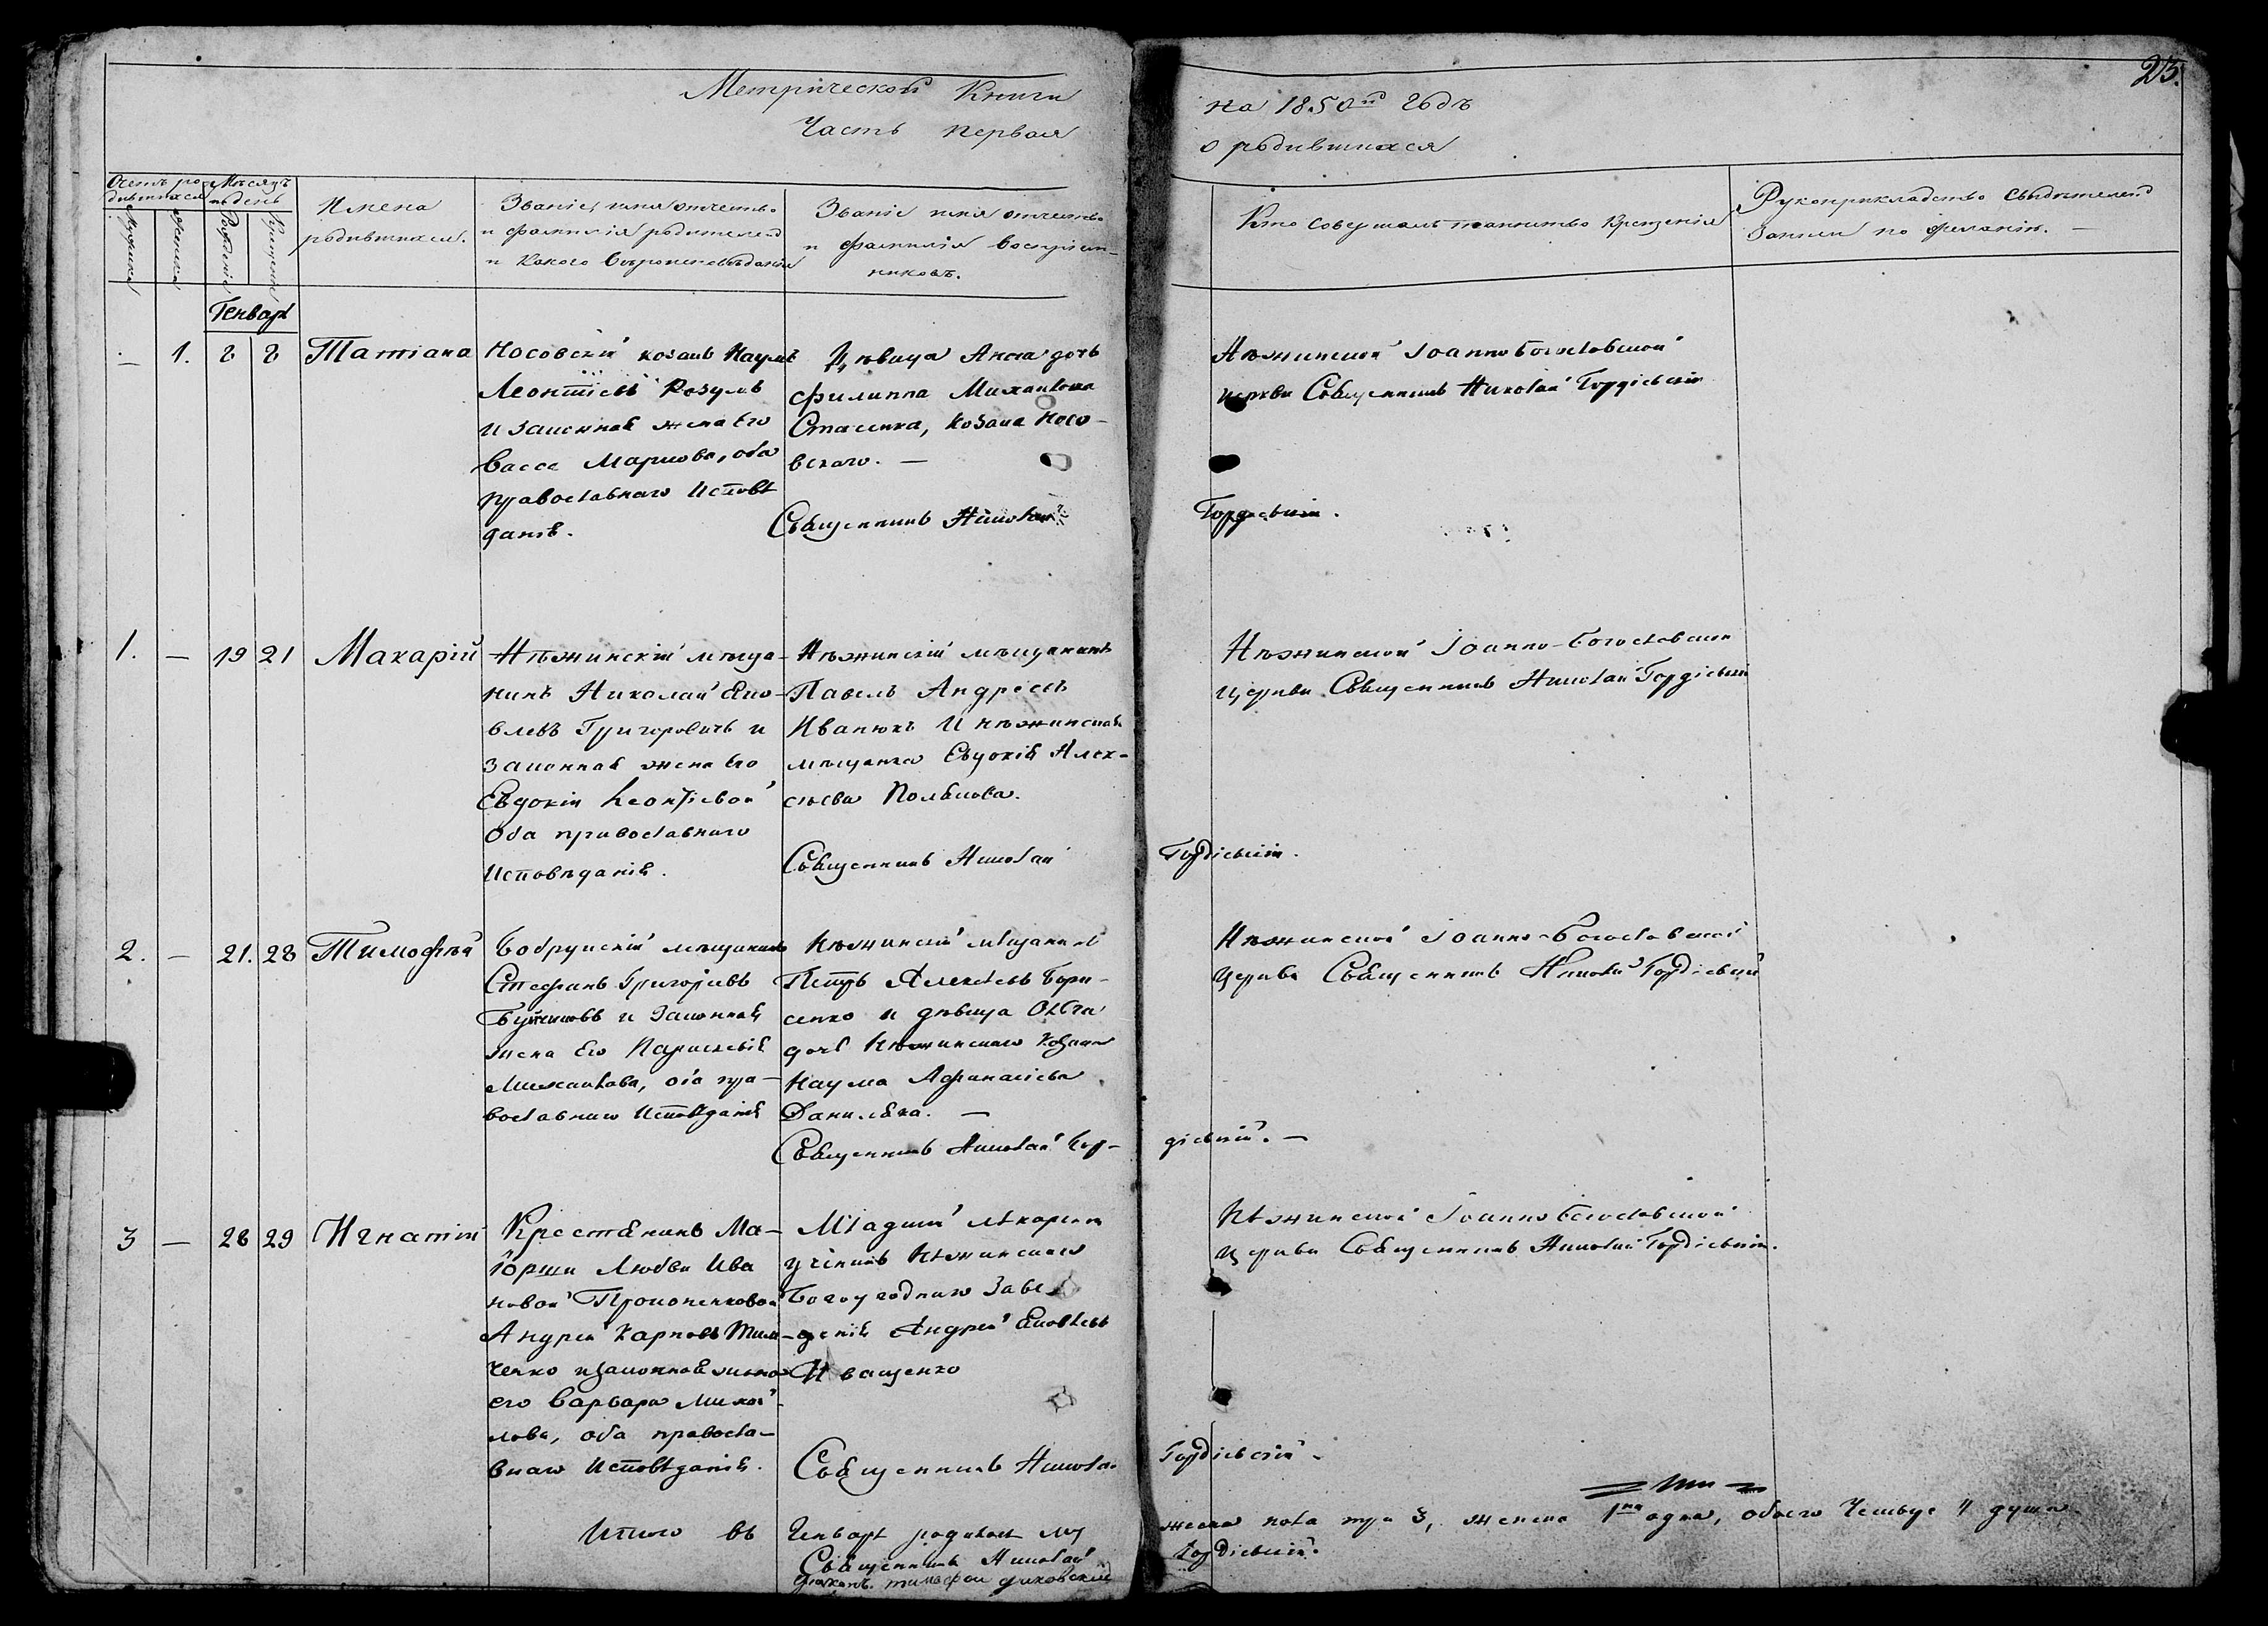 23.
Метрической Книги на 1850й Годъ
Часть первая о родившихся
Счетъ родившихся
Мѣсяцъ и день
Имена родившихся.
Званіе, имя отчество
и фамилія родителей
и какого вѣроисповѣданія
Званіе имя отчество
и фамилія воспріем-
никовъ.
Кто совершалъ таинство крещенія
Рукоприкладство свидѣтелей
записи по желанію. —
Мужеска
Женска
Рожденія
Крещенія
Генварь
— 1. 8 8 Татіана
Носовскій козакъ Наумъ
Леонтіевъ Розумъ
и законная жена его
Васса Маркова, оба
православнаго исповѣ
данія.
Дѣвица Анна дочь
Филиппа Михайлова
Стасенка, козака Носо-
вскаго. —
Священникъ Николай Гордіевскій.
Нѣжинской Іоанно Богословской
церкви Священникъ Николай Гордіевскій
1. — 19 21 Макарій
Нѣжинскій мѣща-
нинъ Николай Яко-
влевъ Григоровичъ и
законная жена его
Евдокія Леонтіевой
оба православнаго
исповѣданія.
Нѣжинскій мѣщанинъ
Павелъ Андреевъ
Иванюкъ и нѣжинская
мѣщанка Евдокія Алек-
сѣева
Священникъ Николай Гордіевскій.
Нѣжинской Іоанно-Богословской
церкви Священникъ Николай Гордіевскій
2. — 21. 28 Тимофѣй
Бобруйскій мѣщанинъ
Стефанъ Григорьевъ
и законная
жена его Параскевія
Михайлова, оба пра-
вославнаго исповѣданія
Нѣжинскій мѣщанинъ
Петръ Алексѣевъ Бори-
сенко и дѣвица Ольга
дочь Нѣжинскаго козака
Наума Афанасіева
Данилевка. —
Священникъ Николай Гор-
діевскій. —
Нѣжинской Іоанно-Богословской
церкви Священникъ Николай Гордіевскій
3 — 28 29 Игнатій
Крестьянинъ Ма-
іорши Любви Ива
новой Прокопенковой
Андрей Карповъ Тим-
ченко и законная жена
его Варвара Михай-
лова, оба правосла-
внаго исповѣданія.
Младшій лѣкарскій
ученикъ Нѣжинскаго
Богоугоднаго Заве
денія Андрей Яковлевъ
Иващенко
Священникъ Николай Гордіевскій.
Нѣжинской Іоанно Богословской
церкви Священникъ Николай Гордіевскій.
Итого въ Генварѣ родилось му
жеска пола три 3, женска 1на одна, обоего четыре 4 души
Священникъ Николай Гордіевскій.
Діаконъ Тимофей Диковскій